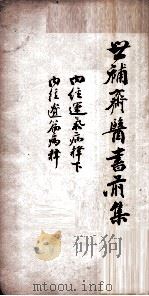 世補齋醫書前集
内經運氣病釋下
内經遺篇病釋